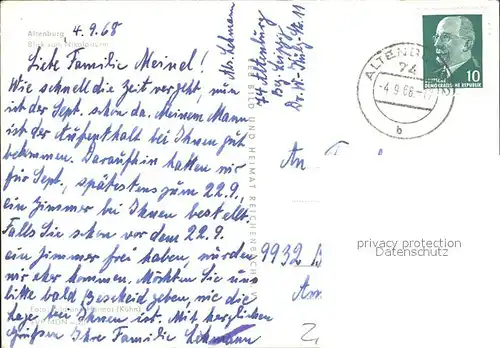 Altenburg 4.9.68
Blick vom Nikolaiturm
Liebe Familie Meinel!
Wie schnell die Zeit vergeht, nun
ist der Sept. schon da. Meinem Mann
ist der Aufenthalt bei Ihnen gut
bekommen. Daraufhin hatten wir
für Sept., spätestens zum 22.9.,
ein Zimmer bei Ihnen bestellt.
Falls Sie schon vor dem 22.9.
ein Zimmer frei haben, würden
wir eher kommen. Möchten Sie uns
bitte bald Bescheid geben, wie die
Lage bei Ihnen ist. Mit herzlichen
Grüßen Ihre Familie Lehmann
(Köhn)
BILD UND HEIMAT REICHENBACH
Abs. Lehmann
74 Altenburg
Bez. Leipzig
ALTENBURG
74
-4.9.68
b
10
DEUTSCHE DEMOKRATISCHE REPUBLIK
An
9932
privacy protection
Datenschutz
Am